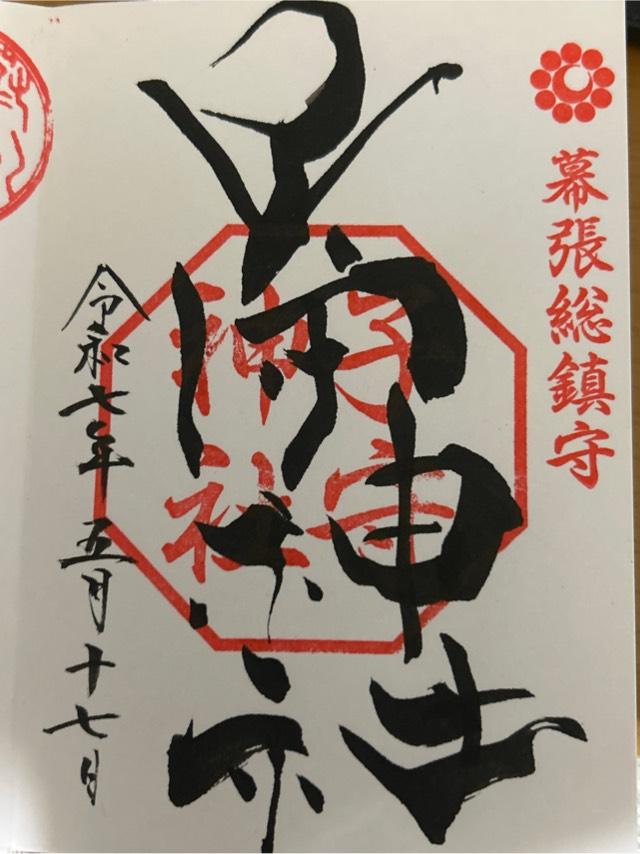 幕張総鎮守
子守神社
子守
神社
令和七年五月十七日